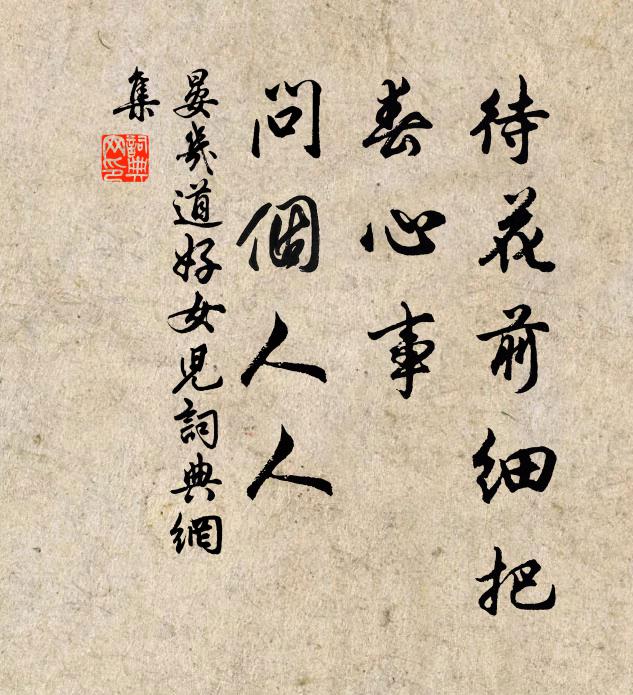 待花前细把
春心事
問個人人
晏幾道好女兒詞典網
集
詞典
网印